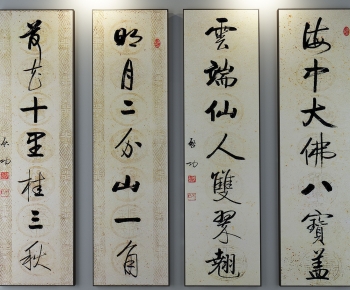 海中大佛八寶蓋
雲端仙人雙翠翹
啓功
明月二分山一角
荷花十里桂三秋
启功